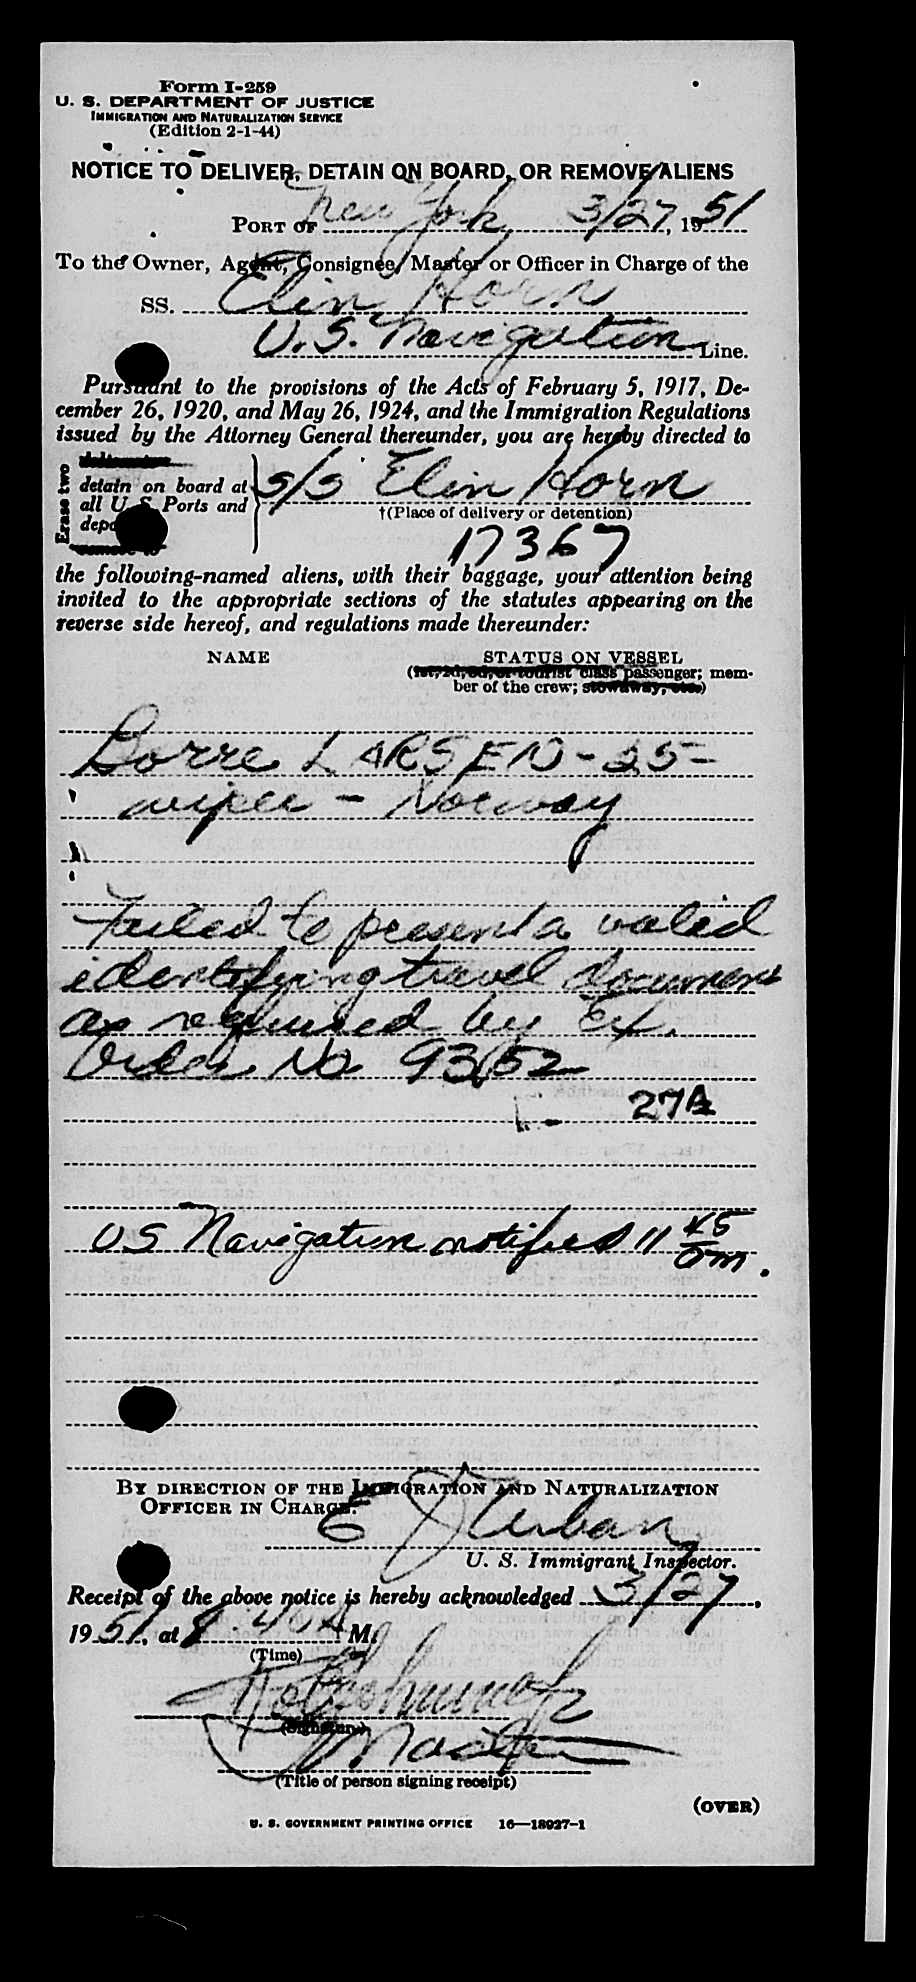 Form I-259
U. S. DEPARTMENT OF JUSTICE
IMMIGRATION AND NATURALIZATION SERVICE
(Edition 2-1-44)
NOTICE TO DELIVER, DETAIN ON BOARD, OR REMOVE ALIENS
PORT OF New York, 3/27, 1951
To the Owner, Agent, Consignee, Master or Officer in Charge of the
SS. Elin Horn
U.S. Navigation Line.
Pursuant to the provisions of the Acts of February 5, 1917, De-
cember 26, 1920, and May 26, 1924, and the Immigration Regulations
issued by the Attorney General thereunder, you are hereby directed to
Erase two
detain on board at
all U. S. Ports and
s/s Elin Horn
†(Place of delivery or detention)
remove to
17367
the following-named aliens, with their baggage, your attention being
invited to the appropriate sections of the statutes appearing on the
reverse side hereof, and regulations made thereunder:
NAME STATUS ON VESSEL
(1st, 2d, 3d, or tourist class passenger; mem-
ber of the crew; stowaway, etc.)
Borre LARSEN - 25 -
wiper - Norway
Failed to present a valid
identifying travel document
as required by Ex.
Order No 9352
27A
US Navigation notified 11 45 am.
BY DIRECTION OF THE IMMIGRATION AND NATURALIZATION
OFFICER IN CHARGE.
E J Urban
U. S. Immigrant Inspector.
Receipt of the above notice is hereby acknowledged 3/27,
1951, at 8:40 A M.
(Time)
(Signature)
Master
(Title of person signing receipt)
(OVER)
U. S. GOVERNMENT PRINTING OFFICE 16—18927-1